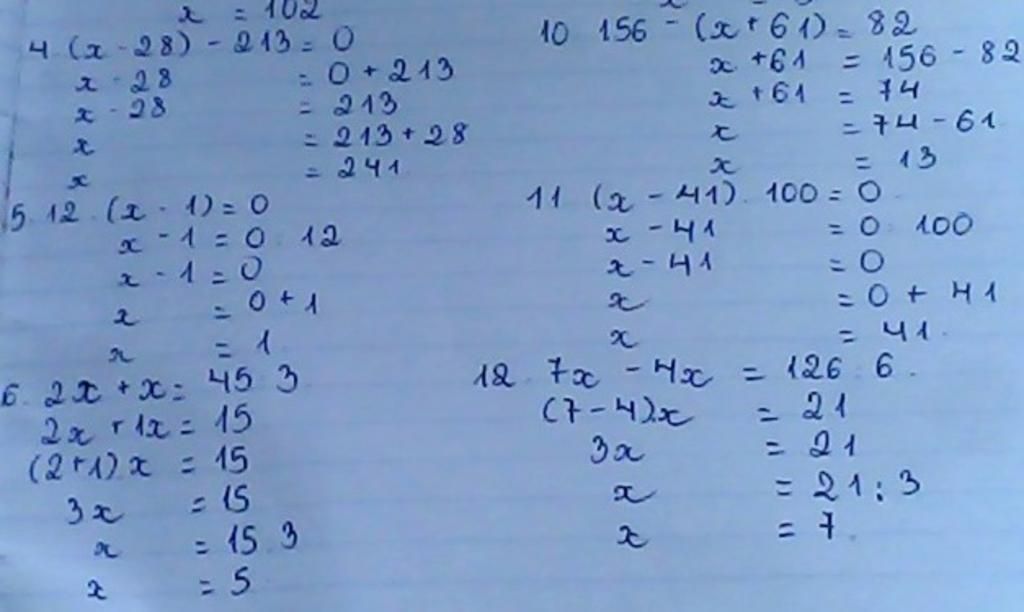 x = 102
4. (x - 28) - 213 = 0
x - 28 = 0 + 213
x - 28 = 213
x = 213 + 28
x = 241
5. 12 . (x - 1) = 0
x - 1 = 0 12
x - 1 = 0
x = 0 + 1
x = 1
6. 2x + x = 45 3
2x + 1x = 15
(2+1) x = 15
3x = 15
x = 15 3
x = 5
10 156 - (x + 61) = 82
x + 61 = 156 - 82
x + 61 = 74
x = 74 - 61
x = 13
11 (x - 41) . 100 = 0
x - 41 = 0 100
x - 41 = 0
x = 0 + 41
x = 41.
12. 7x - 4x = 126 6.
(7 - 4).x = 21
3x = 21
x = 21 : 3
x = 7.